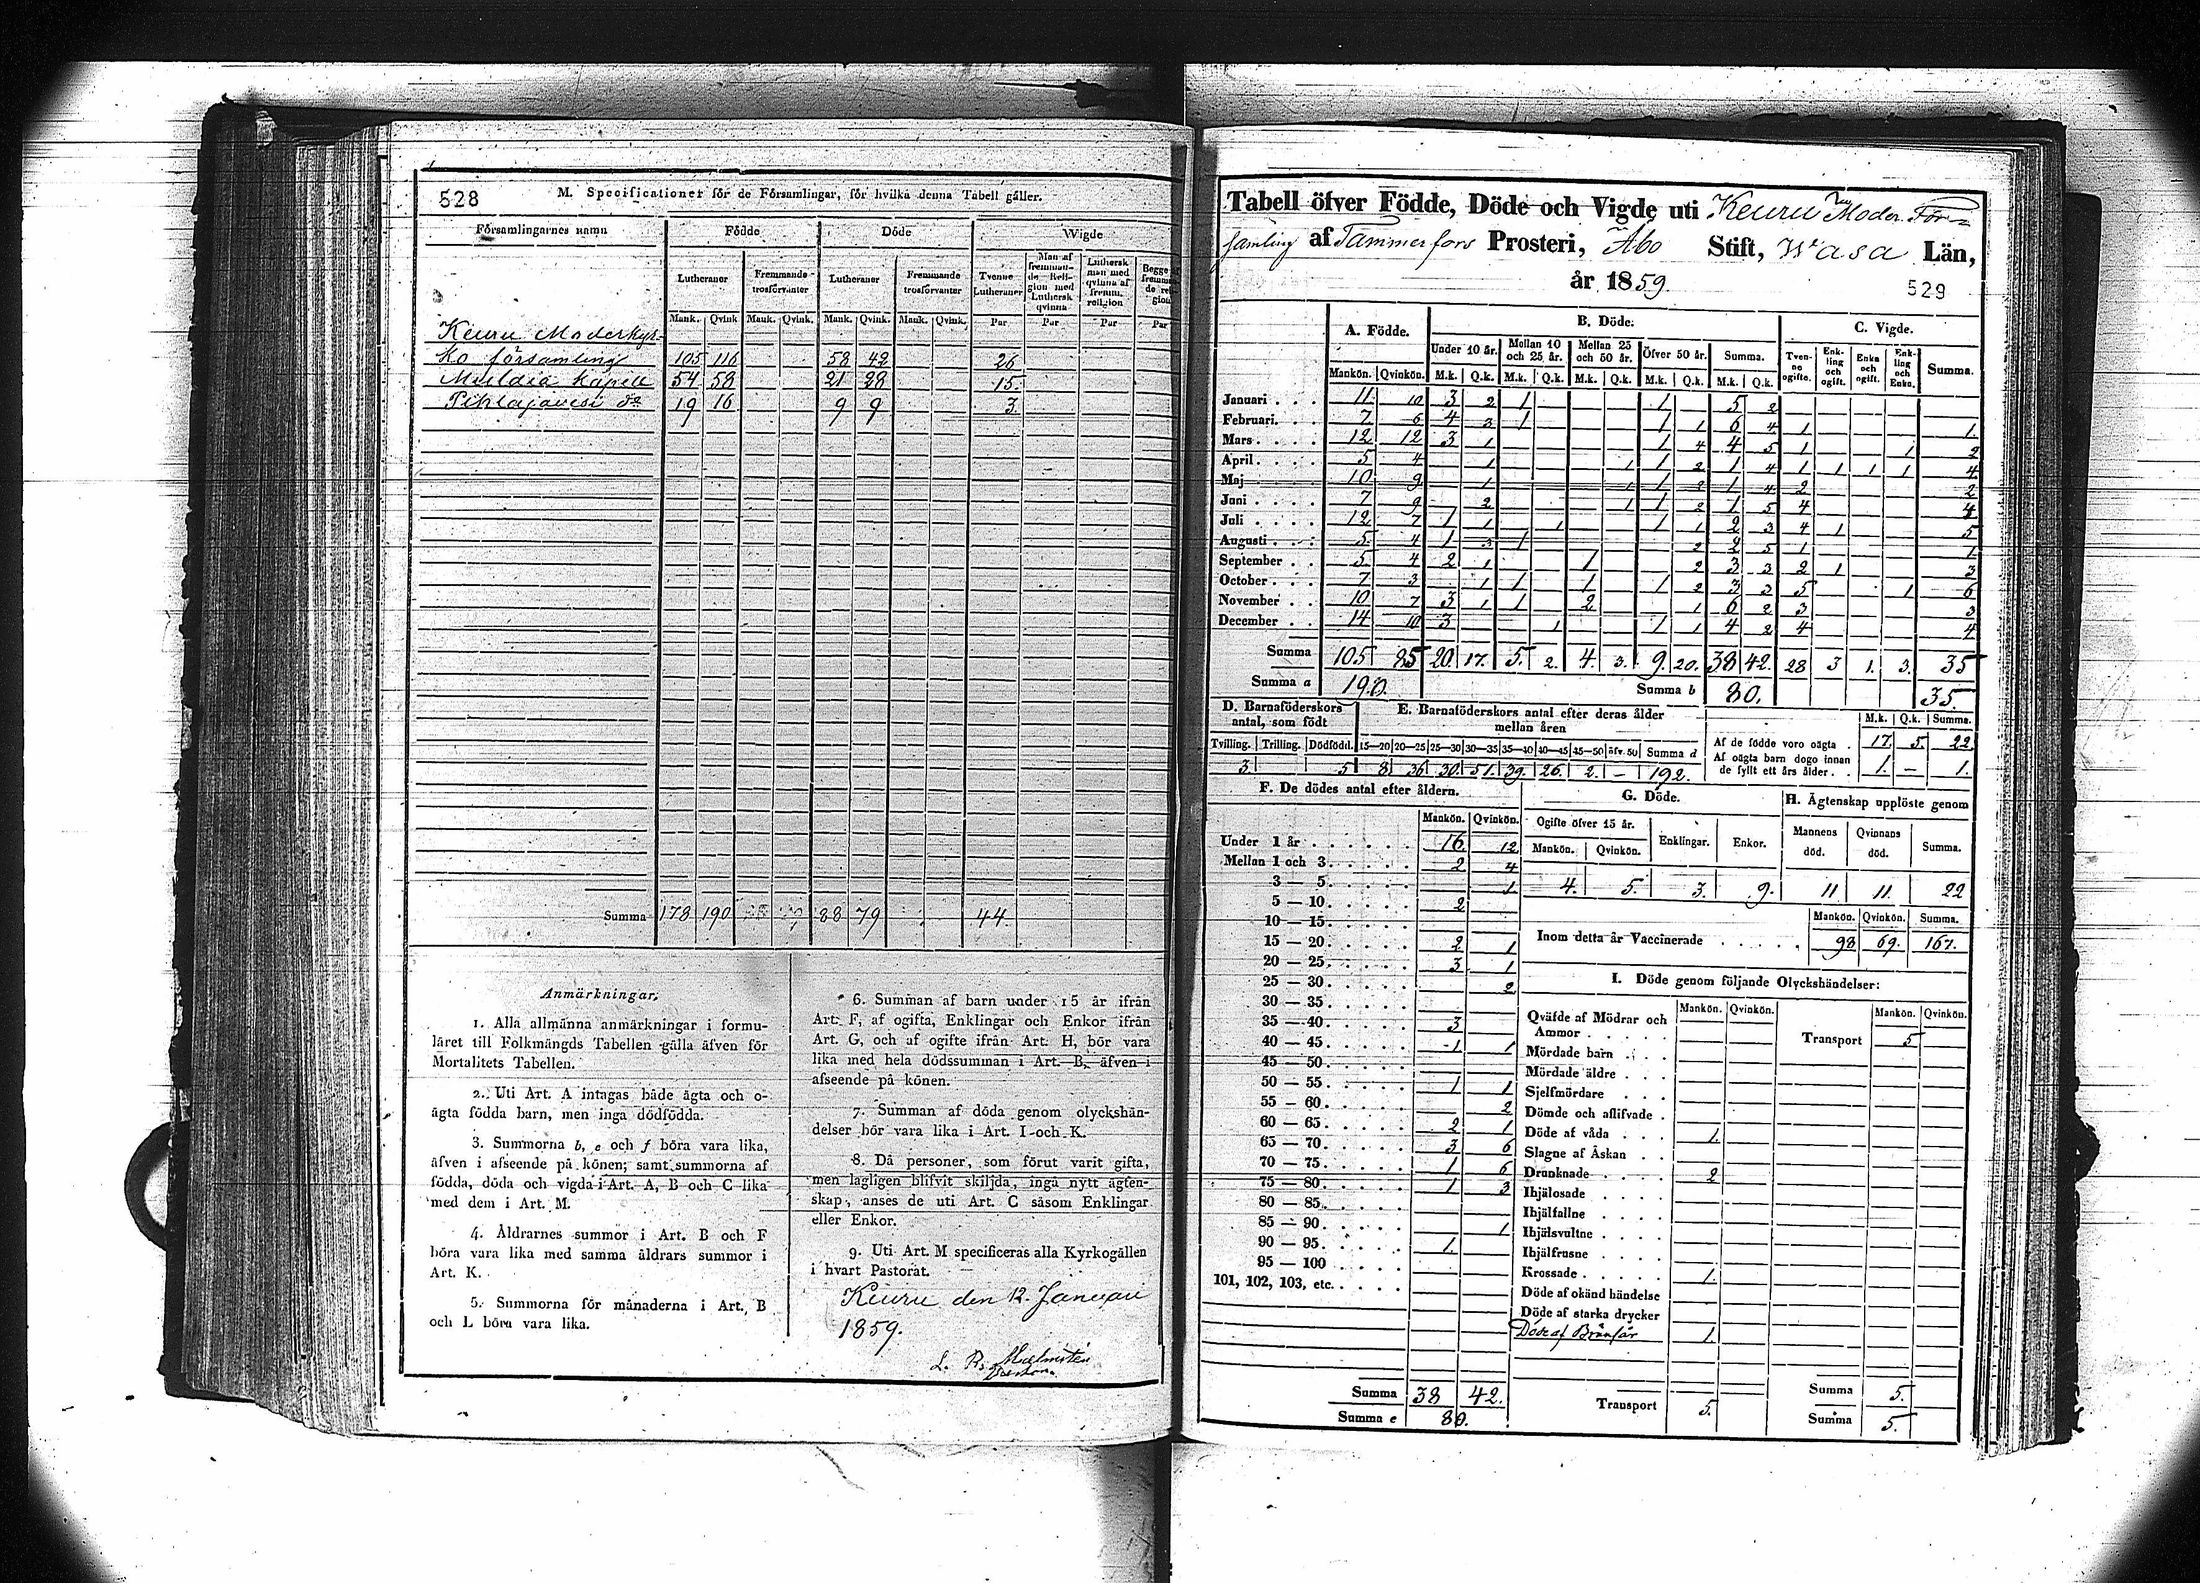 528
M. Specificationer för de Församlingar, för hvilka denna Tabell gäller.
Församlingarnes namn
Födde
Döde
Wigde
Lutheraner
Fremmande trosförvanter
Lutheraner
Fremmande trosförvanter
Tvenne Lutheraner
Man af fremmande Religion med Luthersk qvinna
Luthersk man med qvinna af fremm. religion
Mank. Qvink. Mank. Qvink. Mank. Qvink. Mank. Qvink. Par Par Par Par
Keuru Moderkyr-
ko församling 105 116 58 42 26
Muldia Kapell 54 58 21 28 15.
Pihlajavesi do 19 16 9 9 3.
Summa 178 190 88 79 44
Anmärkningar.
1. Alla allmänna anmärkningar i formu-
läret till Folkmängds Tabellen gälla äfven för
Mortalitets Tabellen.
2. Uti Art. A intagas både ägta och o-
ägta födda barn, men inga dödfödda.
3. Summorna b, e och f böra vara lika,
äfven i afseende på könen; samt summorna af
födda, döda och vigda i Art. A, B och C lika
med dem i Art. M.
4. Åldrarnes summor i Art. B och F
böra vara lika med samma åldrars summor i
Art. K.
5. Summorna för månaderna i Art. B
och L böra vara lika.
6. Summan af barn under 15 år ifrån
Art. F, af ogifta, Enklingar och Enkor ifrån
Art. G, och af ogifte ifrån Art. H, bör vara
lika med hela dödssumman i Art. B, äfven i
afseende på könen.
7. Summan af döda genom olyckshän-
delser bör vara lika i Art. I och K.
8. Då personer, som förut varit gifta,
men lagligen blifvit skiljda, ingå nytt ägten-
skap, anses de uti Art. C såsom Enklingar
eller Enkor.
9. Uti Art. M specificeras alla Kyrkogällen
i hvart Pastorat.
Keuru den 12. Januari
1859.
Malmstén
Tabell öfver Födde, Döde och Vigde uti Keuru Moder För=
samling af Tammerfors Prosteri, Åbo Stift, Wasa Län,
år 1859.
529
A. Födde.
B. Döde.
C. Vigde.
Under 10 år. Mellan 10 och 25 år. Mellan 25 och 50 år. Öfver 50 år. Summa.
Tvenne ogifte. Enkling och ogift. Enka och ogift. Enkling och Enka. Summa.
Mankön. Qvinkön. M.k. Q.k. M.k. Q.k. M.k. Q.k. M.k. Q.k. M.k. Q.k.
Januari 11. 10 3 2 1 1 5 2
Februari 7 6 4 3 1 1 1 6 4 1 1.
Mars 12 12 3 1 1 4 4 5 1 1 2
April 5 4 1 1 1 2 1 4 1 1 1 1 4
Maj 10 9 1 1 1 2 1 4 2 2
Juni 7 9 2 1 1 2 1 5 4 4
Juli 12 7 1 1 1 1 1 2 3 4 1 5
Augusti 5 4 1 3 1 2 2 5 1 1
September 5 4 2 1 1 2 3 3 2 1 3
October 7 3 1 1 1 1 2 3 3 5 1 6
November 10 7 3 1 1 2 1 6 2 3 3
December 14 10 3 1 1 1 4 2 4 4
Summa 105 85 20. 17. 5. 2. 4. 3. 9. 20. 38 42. 28 3 1. 3. 35
Summa a 190. Summa b 80. 35.
D. Barnaföderskors antal, som födt
E. Barnaföderskors antal efter deras ålder mellan åren
M.k. Q.k. Summa.
Tvilling. Trilling. Dödfödd. 15—20 20—25 25—30 30—35 35—40 40—45 45—50 öfv. 50 Summa d
3. 5 8 36 30. 51. 39. 26. 2. — 192.
Af de födde voro oägta 17. 5. 22
Af oägta barn dogo innan
de fyllt ett års ålder 1. — 1.
F. De dödes antal efter åldern.
Mankön. Qvinkön.
Under 1 år 16. 12
Mellan 1 och 3 2 4
3 — 5 1
5 — 10 2
10 — 15
15 — 20 2 1
20 — 25 3 1
25 — 30 2
30 — 35
35 — 40 3
40 — 45 1 1
45 — 50
50 — 55 1 1
55 — 60 2
60 — 65 2 1
65 — 70 3 6
70 — 75 1 6
75 — 80 1 3
80 — 85
85 — 90 1
90 — 95 1.
95 — 100
101, 102, 103, etc.
Summa 38 42.
Summa e 80.
G. Döde.
Ogifte öfver 15 år. Enklingar. Enkor.
Mankön. Qvinkön.
4. 5. 3. 9.
H. Ägtenskap upplöste genom
Mannens död. Qvinnans död. Summa.
11 11. 22
Mankön. Qvinkön. Summa.
Inom detta år Vaccinerade 98 69. 167.
I. Döde genom följande Olyckshändelser:
Mankön. Qvinkön. Mankön. Qvinkön.
Qväfde af Mödrar och
Ammor
Transport 5
Mördade barn
Mördade äldre
Sjelfmördare
Dömde och aflifvade
Döde af våda 1.
Slagne af Åskan
Drunknade 2
Ihjälosade
Ihjälfallne
Ihjälsvultne
Ihjälfrusne
Krossade 1.
Döde af okänd händelse
Döde af starka drycker
Döde af Brånsår 1.
Transport 5.
Summa 5.
Summa 5.